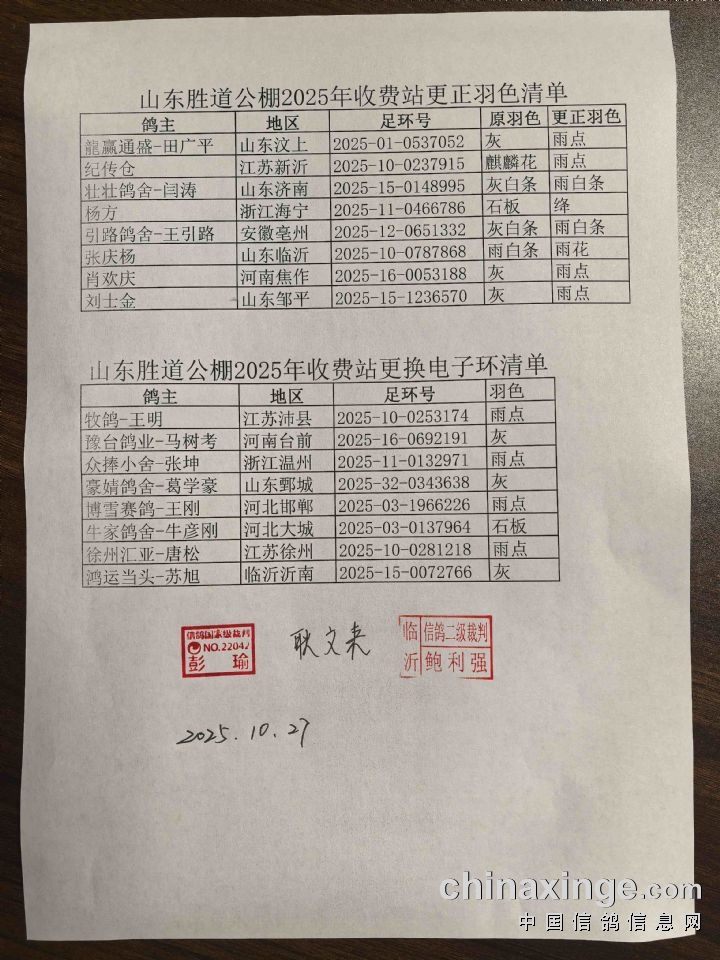 山东胜道公棚2025年收费站更正羽色清单
鸽主 地区 足环号 原羽色 更正羽色
龍赢通盛-田广平 山东汶上 2025-01-0537052 灰 雨点
纪传仓 江苏新沂 2025-10-0237915 麒麟花 雨点
壮壮鸽舍-闫涛 山东济南 2025-15-0148995 灰白条 雨白条
杨方 浙江海宁 2025-11-0466786 石板 绛
引路鸽舍-王引路 安徽亳州 2025-12-0651332 灰白条 雨白条
张庆杨 山东临沂 2025-10-0787868 雨白条 雨花
肖欢庆 河南焦作 2025-16-0053188 灰 雨点
刘士金 山东邹平 2025-15-1236570 灰 雨点
山东胜道公棚2025年收费站更换电子环清单
鸽主 地区 足环号 羽色
牧鸽-王明 江苏沛县 2025-10-0253174 雨点
豫台鸽业-马树考 河南台前 2025-16-0692191 灰
众捧小舍-张坤 浙江温州 2025-11-0132971 雨点
豪婧鸽舍-葛学豪 山东鄄城 2025-32-0343638 灰
博雪赛鸽-王刚 河北邯郸 2025-03-1966226 雨点
牛家鸽舍-牛彦刚 河北大城 2025-03-0137964 石板
徐州汇亚-唐松 江苏徐州 2025-10-0281218 雨点
鸿运当头-苏旭 临沂沂南 2025-15-0072766 灰
信鸽国家级裁判
NO.22042
彭 瑜
耿文来
临沂
信鸽二级裁判
鲍利强
2025.10.27
chinaxinge.com
中国信鸽信息网